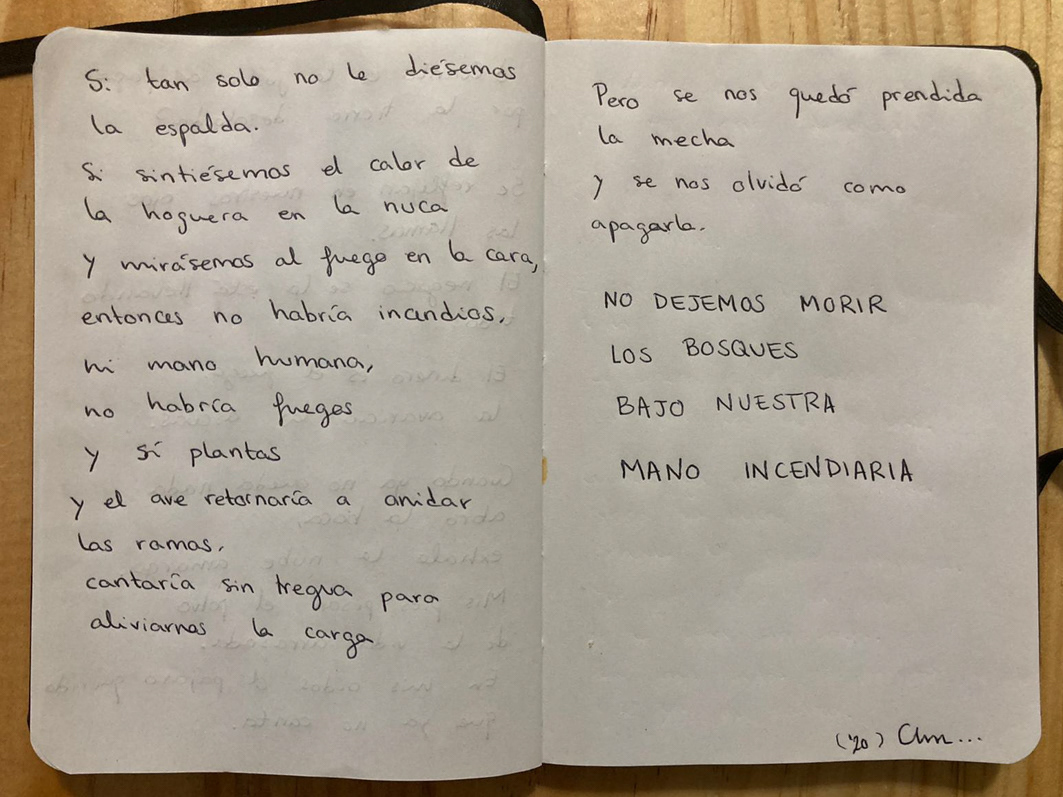 Si tan solo no le diésemos
la espalda.
Si sintiésemos el calor de
la hoguera en la nuca
y mirásemos al fuego en la cara,
entonces no habría incendios,
ni mano humana,
no habría fuegos
y sí plantas
y el ave retornaría a anidar
las ramas,
cantaría sin tregua para
aliviarnos la carga
Pero se nos quedó prendida
la mecha
y se nos olvidó como
apagarla.
NO DEJEMOS MORIR
LOS BOSQUES
BAJO NUESTRA
MANO INCENDIARIA
('20)